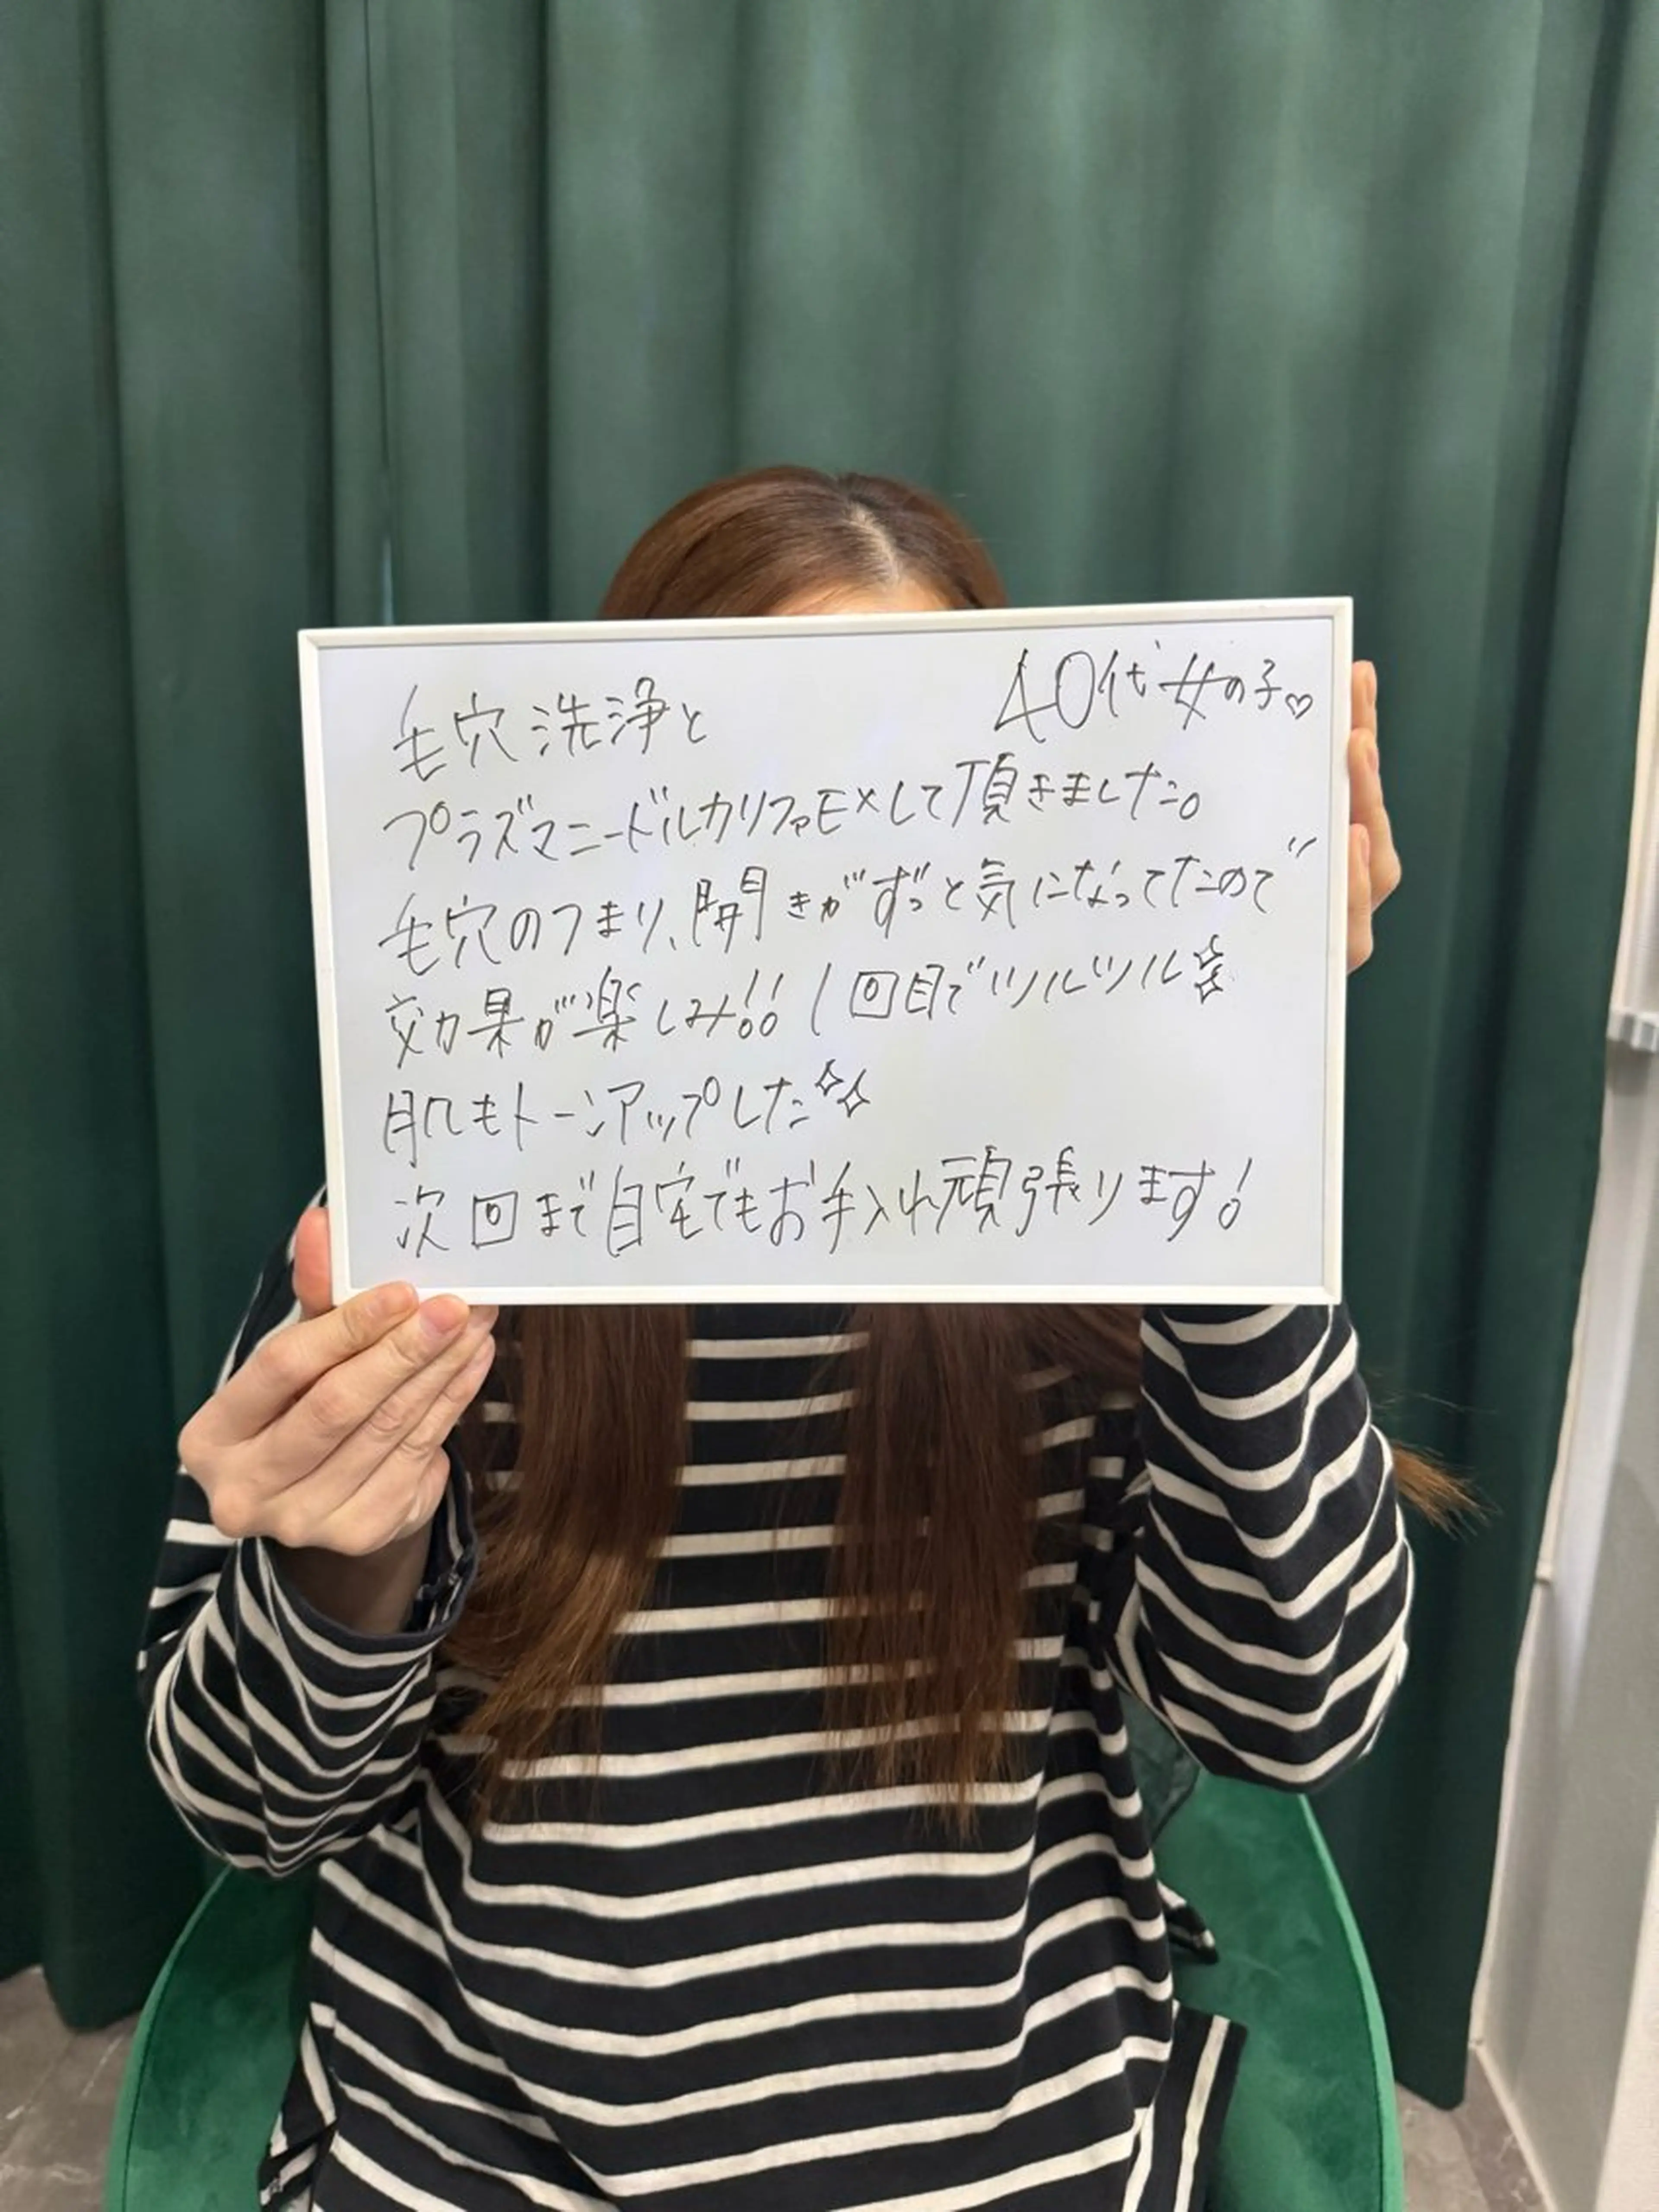 40代女の子♡
毛穴洗浄と
プラズマニードルカリファEXして頂きました。
毛穴のつまり、開きがずっと気になってたので
効果が楽しみ!! 1回目でツルツル
肌もトーンアップした
次回まで自宅でもお手入れ頑張ります!